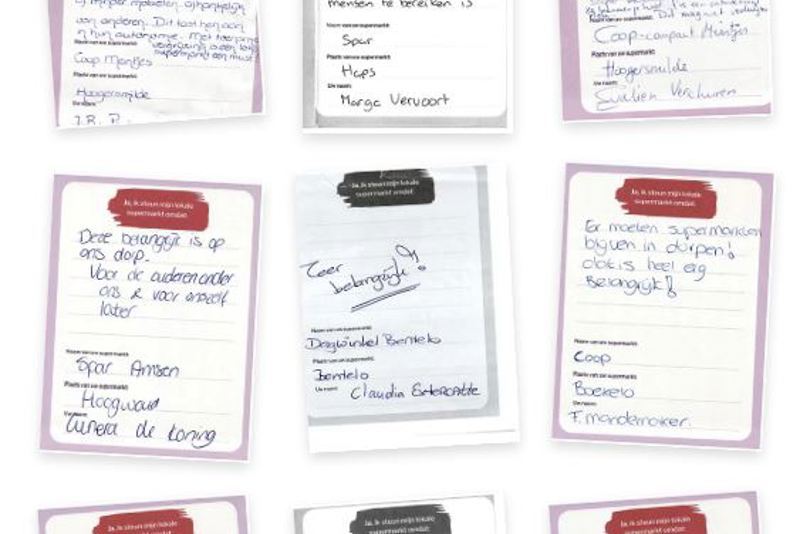 van anderen. Dit tast hen aan
in hun autonomie. Met
supermarkt een must!
Naam van uw supermarkt:
Coop Mantjes
Plaats van uw supermarkt:
Hoogersmilde
Uw naam:
mensen te bereiken is
Naam van uw supermarkt:
Spar
Plaats van uw supermarkt:
Haps
Uw naam:
Marga Vervoort
Coop-compact
Plaats van uw supermarkt:
Hoogersmilde
Uw naam:
Ja, ik steun mijn lokale
supermarkt omdat:
Deze belangrijk is op
ons dorp.
Voor de ouderen onder
ons & voor onszelf
later
Naam van uw supermarkt:
Spar
Plaats van uw supermarkt:
Hoogwoud
Uw naam:
de Koning
Ja, ik steun mijn lokale
supermarkt omdat:
Zeer
belangrijk!
Naam van uw supermarkt:
Dagwinkel Bentelo
Plaats van uw supermarkt:
Bentelo
Uw naam:
Claudia
Ja, ik steun mijn lokale
supermarkt omdat:
Er moeten supermarkten
blijven in dorpen!
dat is heel erg
Belangrijk!
Naam van uw supermarkt:
Coop
Plaats van uw supermarkt:
Boekelo
Uw naam:
F. mandemaker.
Ja, ik steun mijn lokale
supermarkt omdat:
Ja, ik steun mijn lokale
supermarkt omdat:
Ja, ik steun mijn lokale
supermarkt omdat: